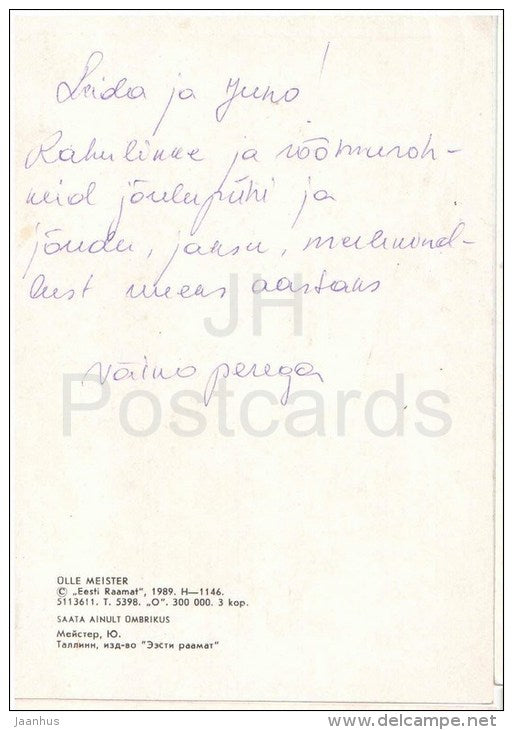 Leida ja Juho!
Rahulikke ja rõõmuroh-
keid jõulupühi ja
jõudu, jaksu, meelekind-
lust uueks aastaks
Väino perega
JH
Postcards
ÜLLE MEISTER
© „Eesti Raamat", 1989. H—1146.
5113611. T. 5398. „O". 300 000. 3 kop.
SAATA AINULT ÜMBRIKUS
Мейстер, Ю.
Таллинн, изд-во "Ээсти раамат"
jaanhus
www.delcampe.net